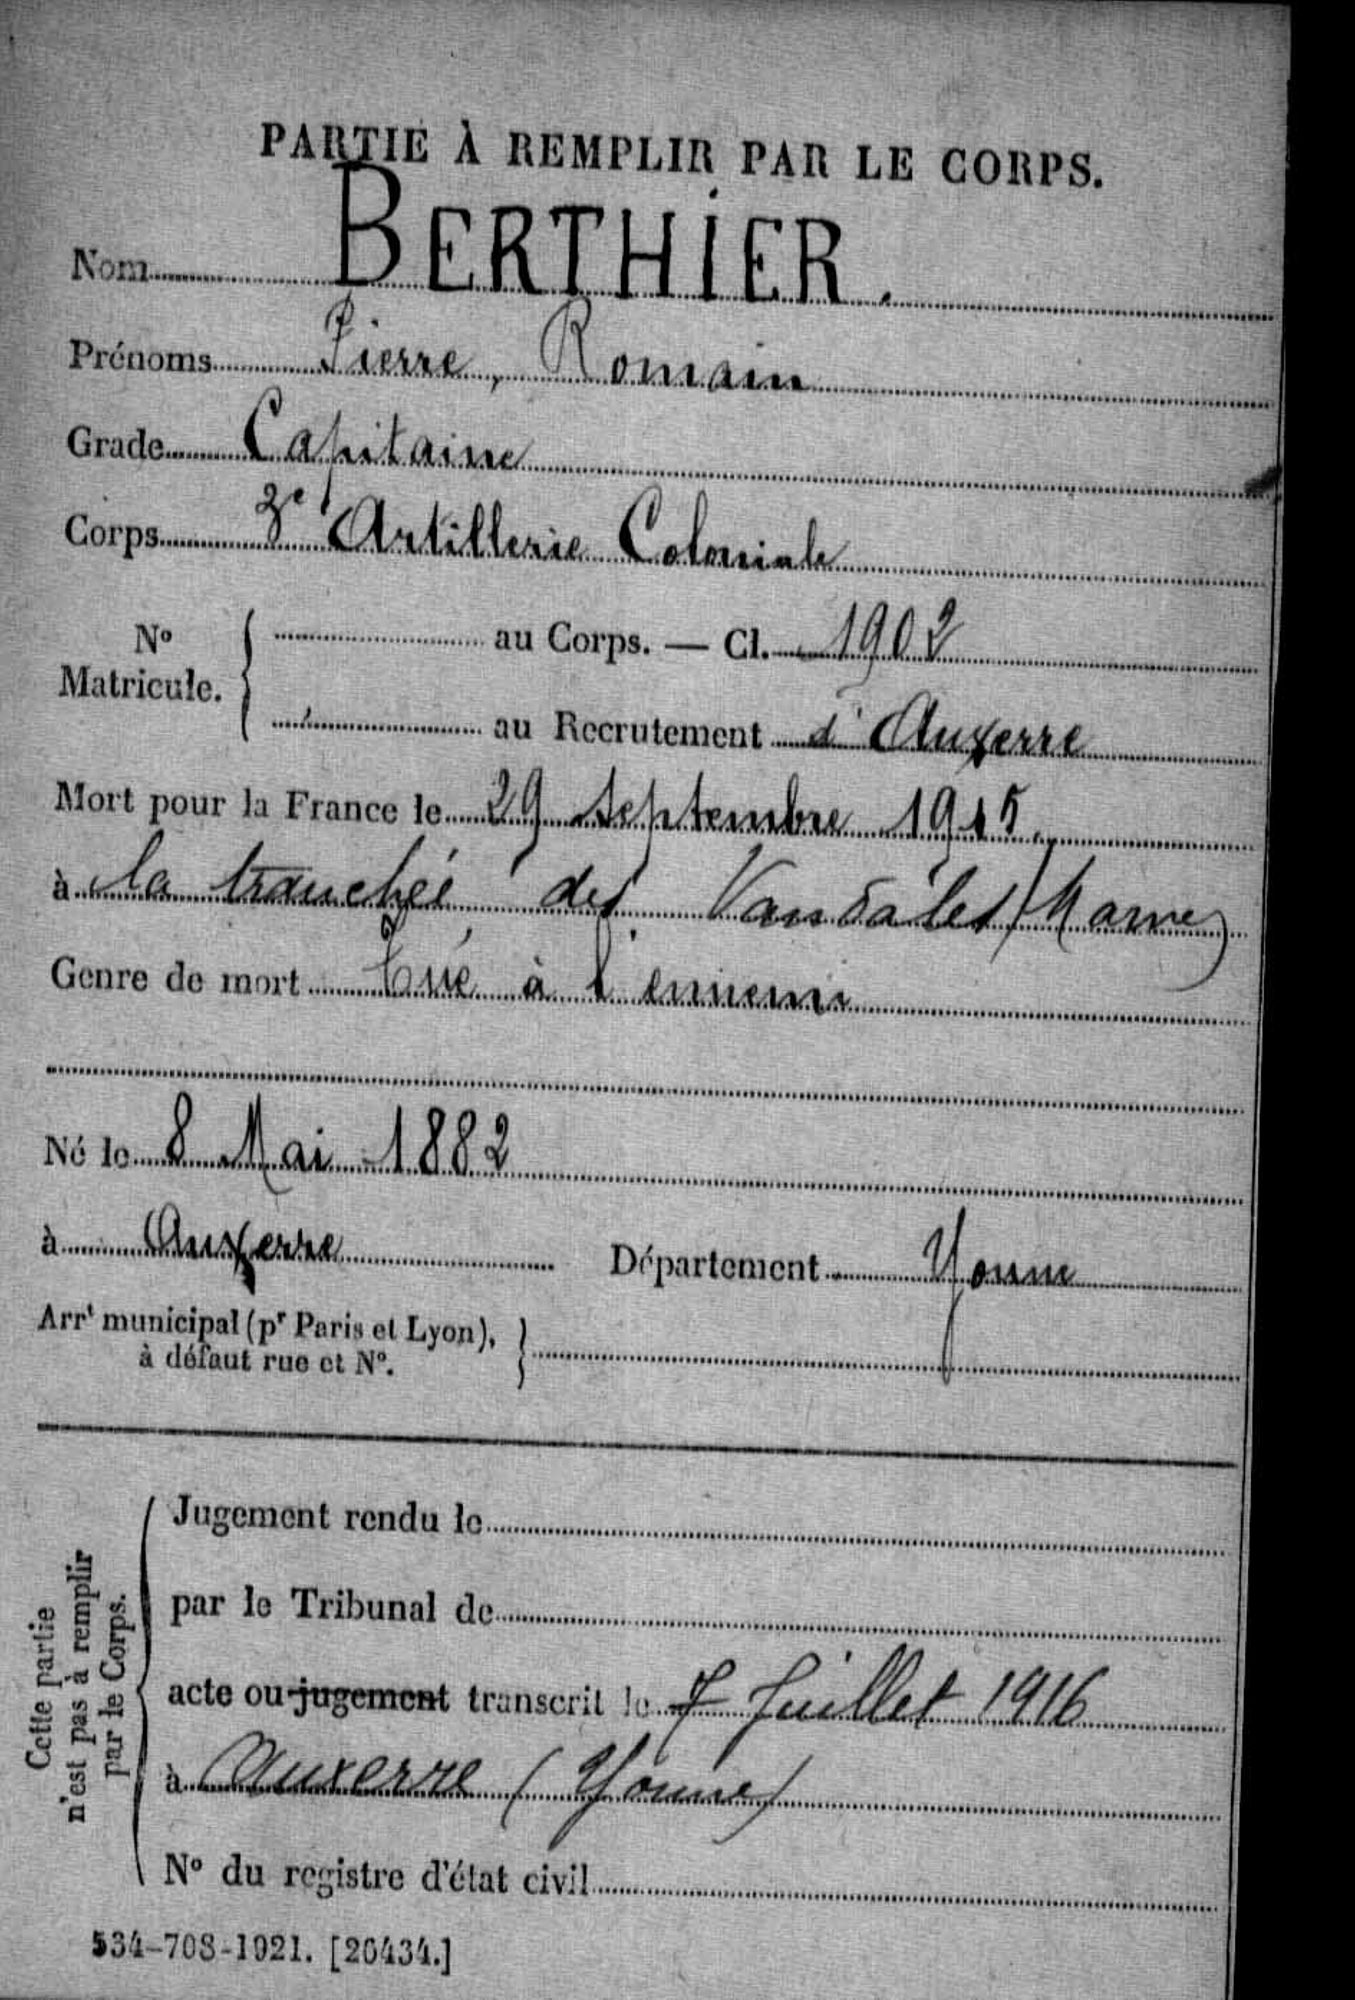 PARTIE À REMPLIR PAR LE CORPS.
Nom BERTHIER.
Prénoms Pierre, Romain
Grade Capitaine
Corps 3e Artillerie Coloniale
No Matricule. { au Corps. — Cl. 1902
au Recrutement d'Auxerre
Mort pour la France le 29 septembre 1915
à la tranchée des Vandales (Marne)
Genre de mort Tué à l'ennemi
Né le 8 Mai 1882
à Auxerre Département Yonne
Arrt municipal (pr Paris et Lyon), }
à défaut rue et No.
Cette partie
n'est pas à remplir
par le Corps.
Jugement rendu le
par le Tribunal de
acte ou jugement transcrit le 7 Juillet 1916
à Auxerre (Yonne)
No du registre d'état civil
534-708-1921. [26434.]